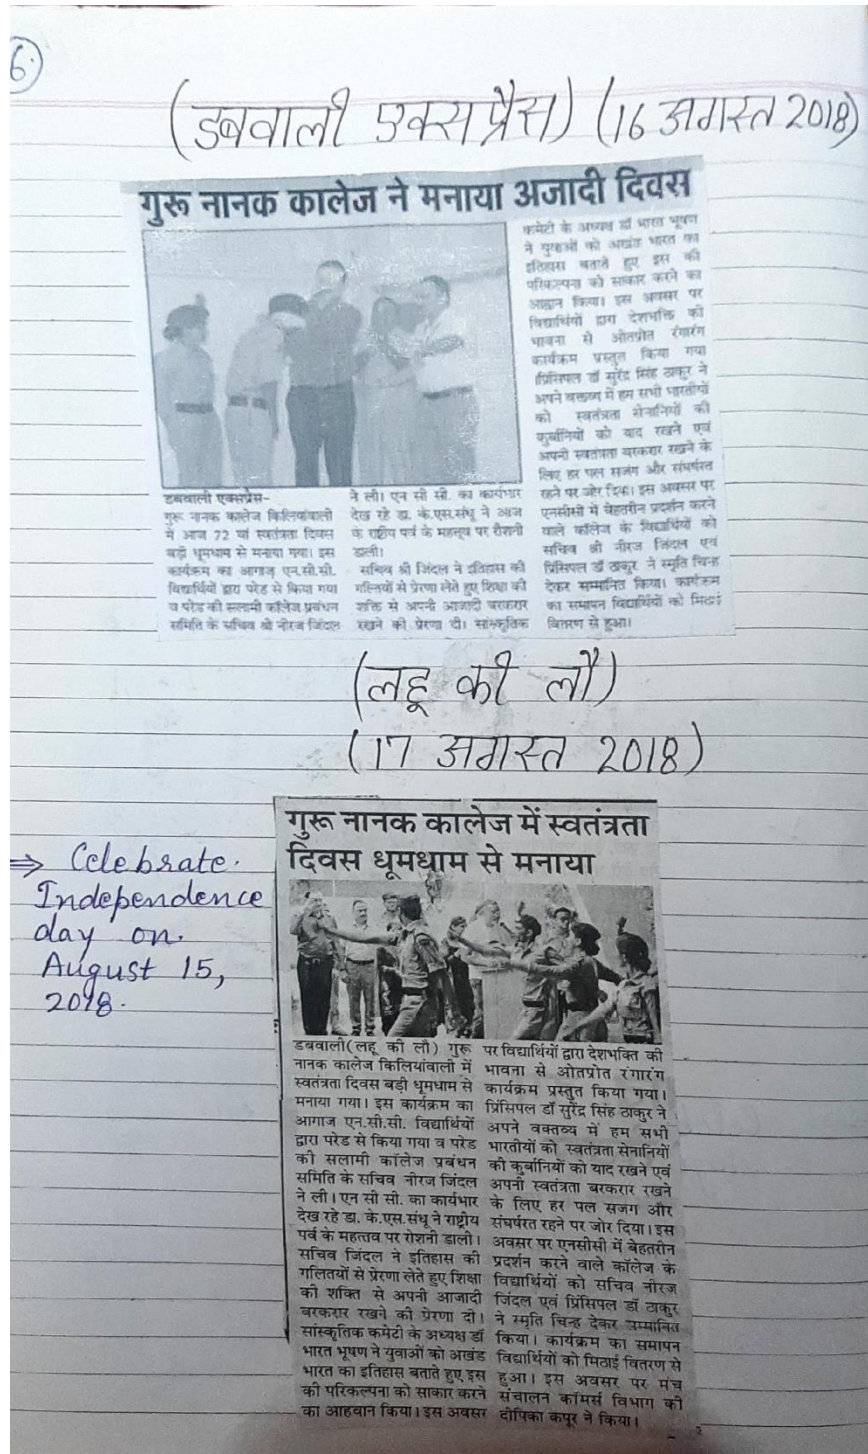 6.
(डबवाली एक्सप्रैस) (16 अगस्त 2018)
गुरू नानक कालेज ने मनाया अजादी दिवस
डबवाली एक्सप्रेस-
गुरू नानक कालेज किलियांवाली
में आज 72 वां स्वतंत्रता दिवस
बड़ी धूमधाम से मनाया गया। इस
कार्यक्रम का आगाज एन.सी.सी.
विद्यार्थियों द्वारा परेड से किया गया
व परेड की सलामी कॉलेज प्रबंधन
समिति के सचिव श्री नीरज जिंदल
ने ली। एन सी सी. का कार्यभार
देख रहे डा. के.एस.संधू ने आज
के राष्ट्रीय पर्व के महत्तव पर रौशनी
डाली।
सचिव श्री जिंदल ने इतिहास की
गल्तियों से प्रेरणा लेते हुए शिक्षा की
शक्ति से अपनी आजादी बरकरार
रखने की प्रेरणा दी। सांस्कृतिक
कमेटी के अध्यक्ष डॉ भारत भूषण
ने युवाओं को अखंड भारत का
इतिहास बताते हुए इस की
परिकल्पना को साकार करने का
आह्वान किया। इस अवसर पर
विद्यार्थियों द्वारा देशभक्ति की
भावना से ओतप्रोत रंगारंग
कार्यक्रम प्रस्तुत किया गया
।प्रिंसिपल डॉ सुरेंद्र सिंह ठाकुर ने
अपने वक्तव्य में हम सभी भारतीयों
को स्वतंत्रता सेनानियों की
कुर्बानियों को याद रखने एवं
अपनी स्वतंत्रता बरकरार रखने के
लिए हर पल सजग और संघर्षरत
रहने पर जोर दिया। इस अवसर पर
एनसीसी में बेहतरीन प्रदर्शन करने
वाले कॉलेज के विद्यार्थियों को
सचिव श्री नीरज जिंदल एवं
प्रिंसिपल डॉ ठाकुर ने स्मृति चिन्ह
देकर सम्मानित किया। कार्यक्रम
का समापन विद्यार्थियों को मिठाई
वितरण से हुआ।
(लहू की लौ)
(17 अगस्त 2018)
⇒ Celebrate.
Independence
day on.
August 15,
2018.
गुरू नानक कालेज में स्वतंत्रता
दिवस धूमधाम से मनाया
डबवाली(लहू की लौ) गुरू
नानक कालेज किलियांवाली में
स्वतंत्रता दिवस बड़ी धूमधाम से
मनाया गया। इस कार्यक्रम का
आगाज एन.सी.सी. विद्यार्थियों
द्वारा परेड से किया गया व परेड
की सलामी कॉलेज प्रबंधन
समिति के सचिव नीरज जिंदल
ने ली। एन सी सी. का कार्यभार
देख रहे डा. के.एस.संधू ने राष्ट्रीय
पर्व के महत्तव पर रोशनी डाली।
सचिव जिंदल ने इतिहास की
गलितयों से प्रेरणा लेते हुए शिक्षा
की शक्ति से अपनी आजादी
बरकरार रखने की प्रेरणा दी।
सांस्कृतिक कमेटी के अध्यक्ष डॉ
भारत भूषण ने युवाओं को अखंड
भारत का इतिहास बताते हुए इस
की परिकल्पना को साकार करने
का आहवान किया। इस अवसर
पर विद्यार्थियों द्वारा देशभक्ति की
भावना से ओतप्रोत रंगारंग
कार्यक्रम प्रस्तुत किया गया।
प्रिंसिपल डॉ सुरेंद्र सिंह ठाकुर ने
अपने वक्तव्य में हम सभी
भारतीयों को स्वतंत्रता सेनानियों
की कुर्बानियों को याद रखने एवं
अपनी स्वतंत्रता बरकरार रखने
के लिए हर पल सजग और
संघर्षरत रहने पर जोर दिया। इस
अवसर पर एनसीसी में बेहतरीन
प्रदर्शन करने वाले कॉलेज के
विद्यार्थियों को सचिव नीरज
जिंदल एवं प्रिंसिपल डॉ ठाकुर
ने स्मृति चिन्ह देकर सम्मानित
किया। कार्यक्रम का समापन
विद्यार्थियों को मिठाई वितरण से
हुआ। इस अवसर पर मंच
संचालन कॉमर्स विभाग की
दीपिका कपूर ने किया।